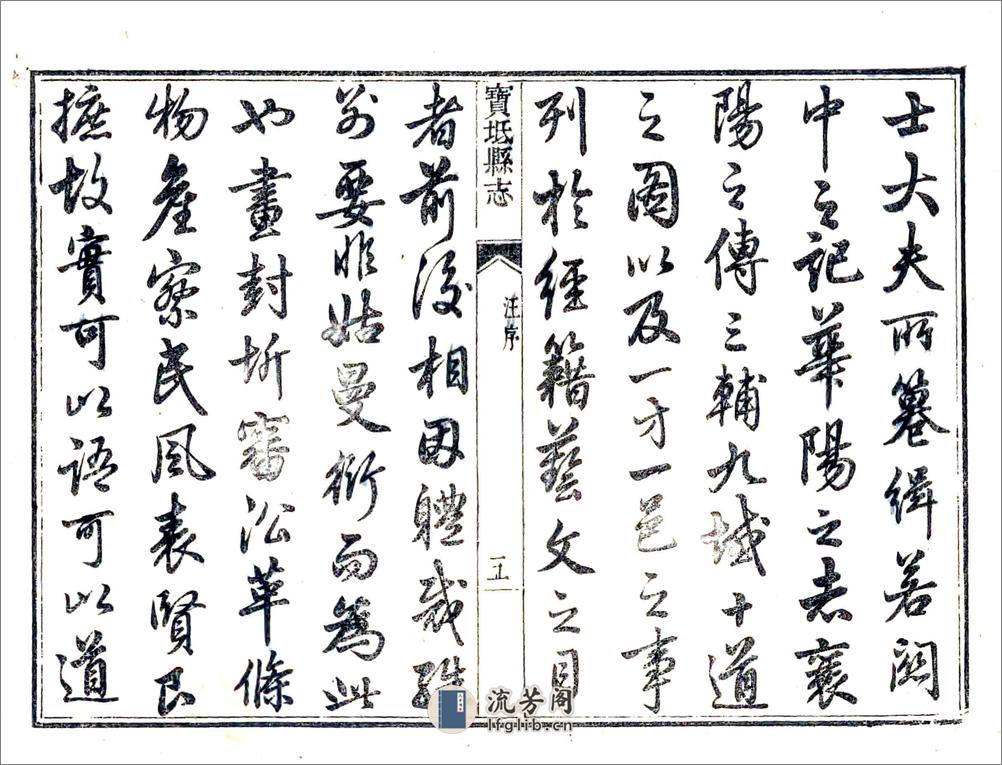 士大夫所纂緝若關
中之記華陽之志襄
陽之傳三輔九域十道
之圖以及一方一邑之事
列於經籍藝文之目
寶坻縣志
汪序
五
者前後相因體裁雖
別要非姑曼衍而為此
也畫封圻審沿革條
物產察民風表賢良
摭故實可以語可以道
流芳阁
lfglib.cn